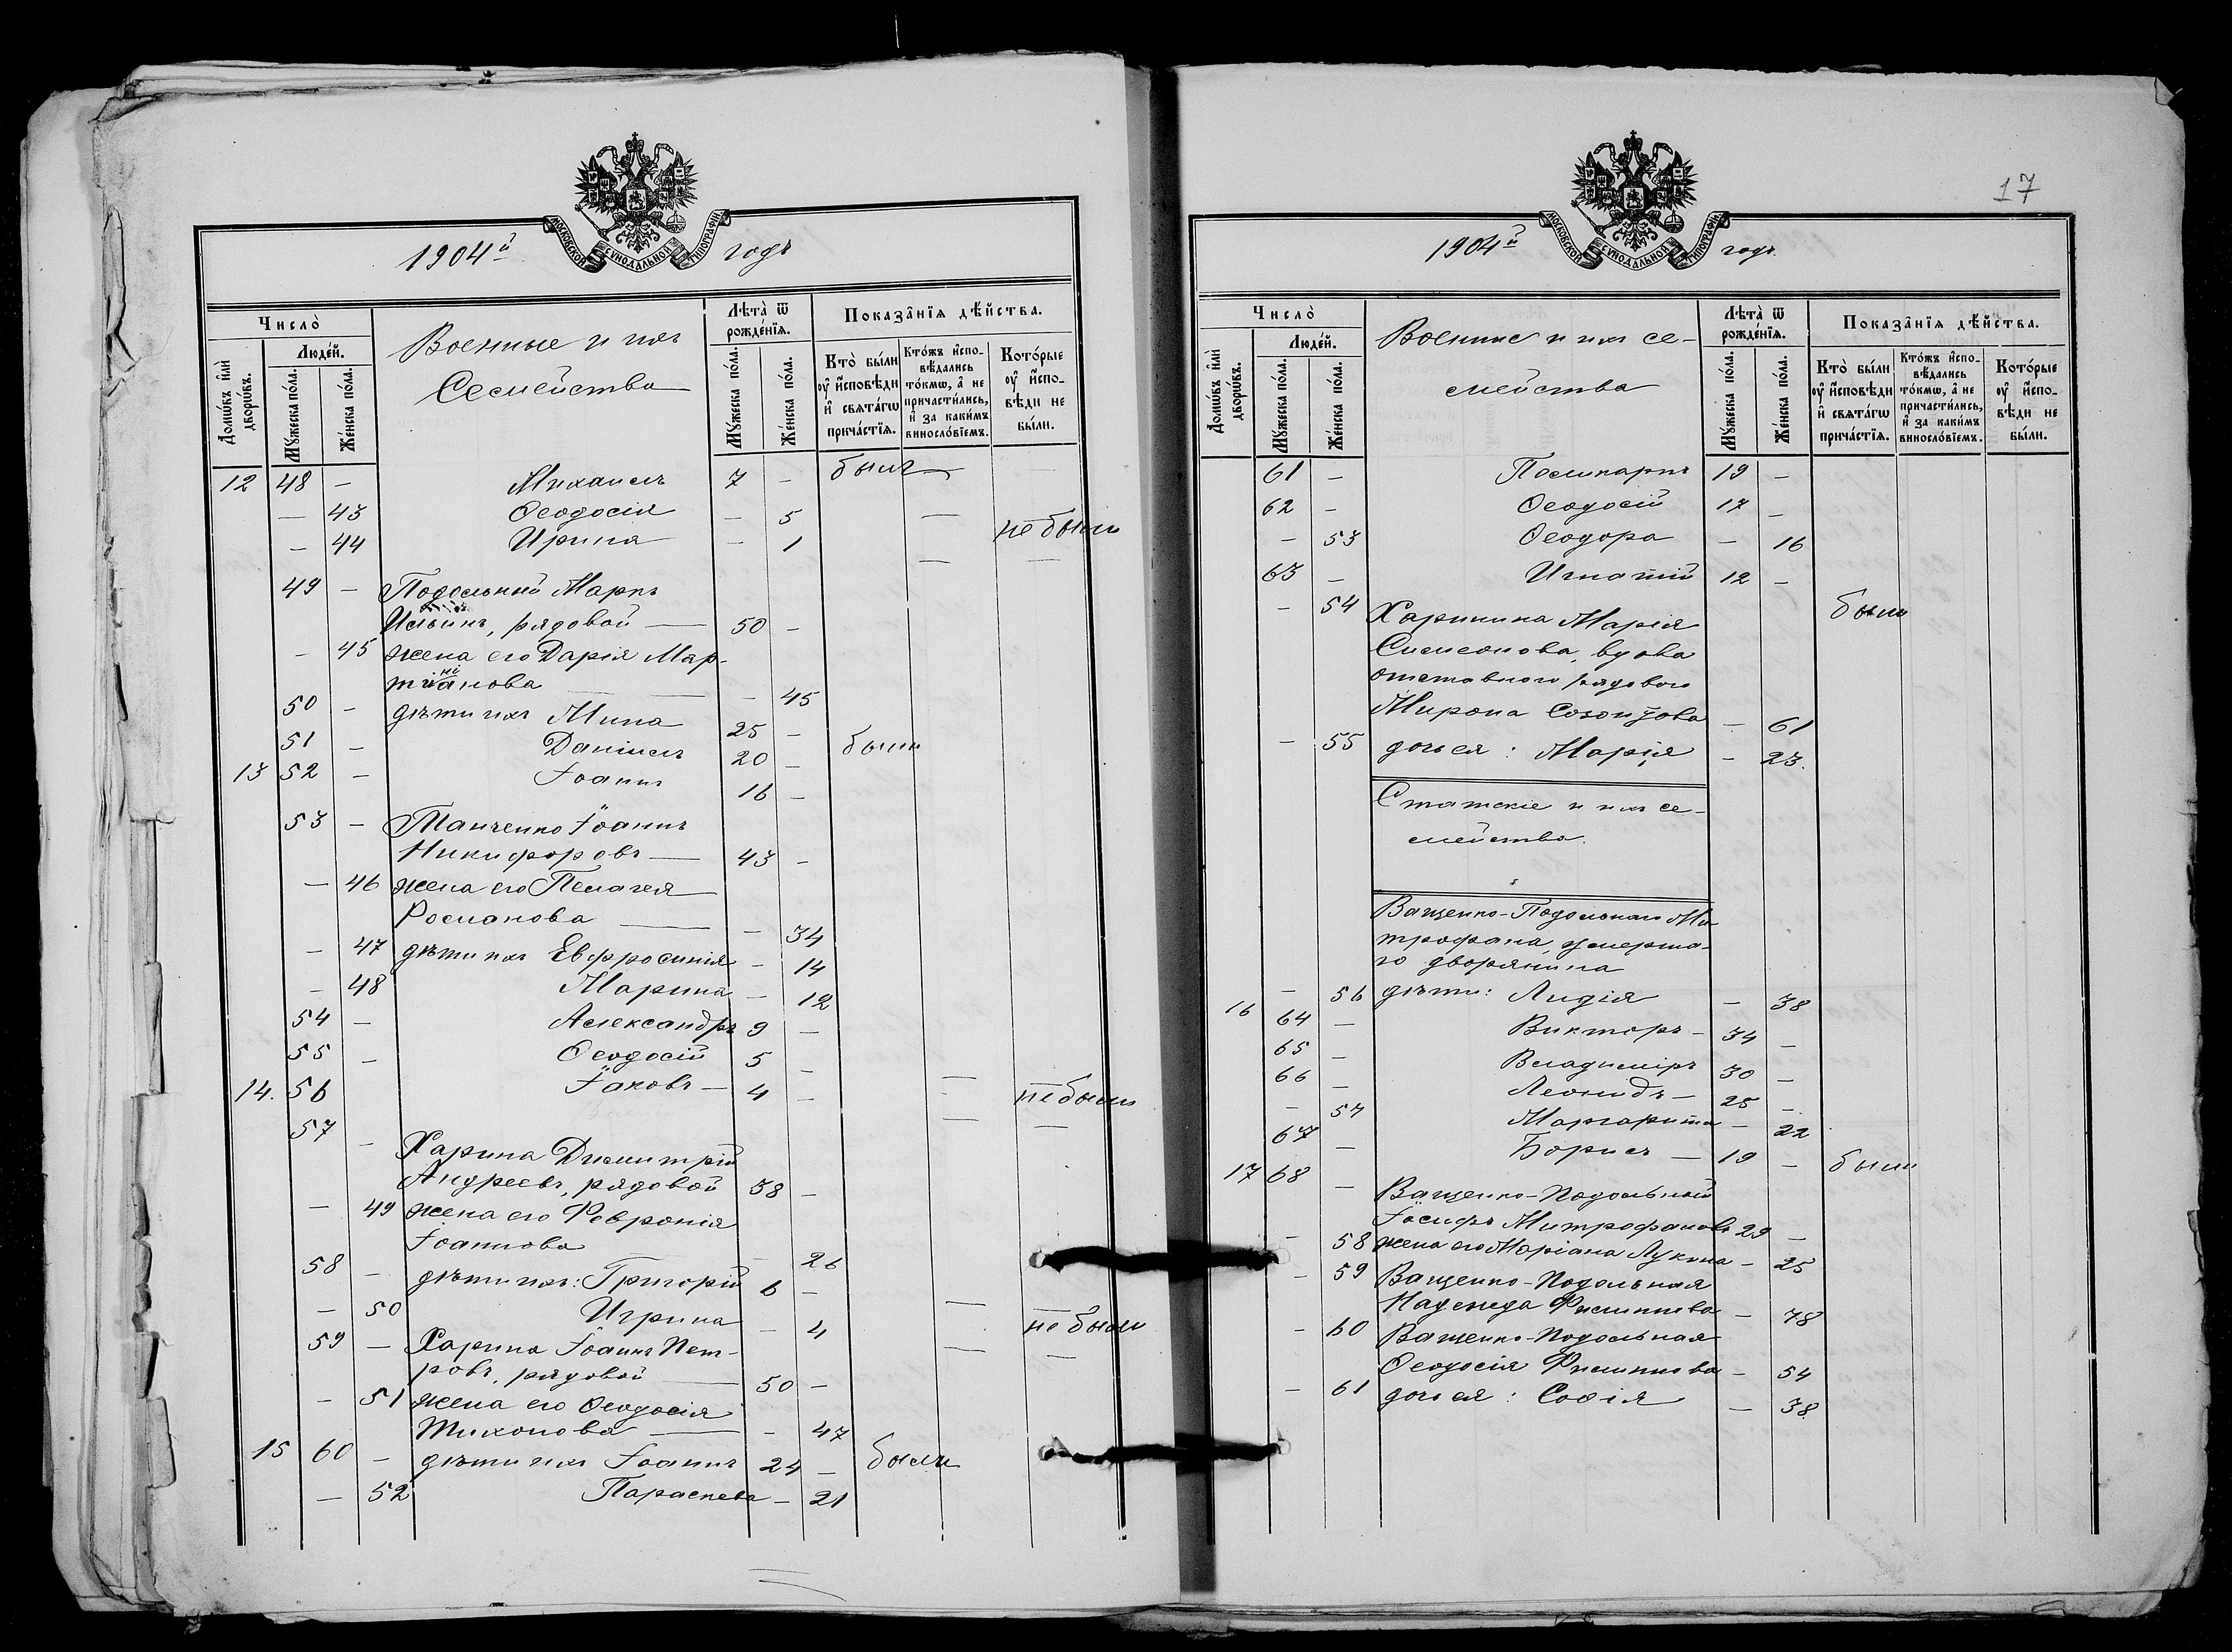 1904й годъ
МОСКОВСКОЙ СУНОДАЛЬНОЙ ТИПОГРАФІИ
Число̀
Домѡ́въ и҆лѝ дворѡ́въ.
Люде́й.
Мꙋ́жеска по́ла.
Же́нска по́ла.
Военные и ихъ
Семейства
Лѣта̀ ѿ рожде́нїѧ.
Мꙋ́жеска по́ла.
Же́нска по́ла.
Показа̂нїѧ дѣ́йства.
Кто̀ бы́ли ᲂу҆ и҆́сповѣди и҆ свѧта́гѡ прича́стїѧ.
Кто́жъ и҆спо-вѣ́дались то́кмѡ, а҆ не причасти́лись, и҆ за каки́мъ винослѡ́вїемъ.
Кото́рые ᲂу҆ и҆́спо-вѣди не бы́ли.
12 48 - Михаилъ 7 - были
- 43 Ѳеодосія - 5
- 44 Ирина - 1 не были
49 - Подольный Маркъ
Ильинъ, рядовой 50 -
- 45 жена его Дарія Мар-
тиніанова - 45
50 - дѣти ихъ Мина 25 -
51 - Даніилъ 20 - были
13 52 - Іоаннъ 16 -
53 - Танченко Іоаннъ
Никифоровъ 43 -
- 46 жена его Пелагея
Романова - 34
- 47 дѣти ихъ Евфросинія - 14
- 48 Марина - 12
54 - Александръ 9 -
55 - Ѳеодосій 5 -
14. 56 Іаковъ 4 - не были
57 - Харина Димитрій
Андреевъ, рядовой 38 -
- 49 жена его Февронія
Іоаннова - 26
58 - дѣти ихъ: Григорій 6 -
- 50 Ирина - 4 не были
59 - Харина Іоаннъ Пет-
ровъ, рядовой 50 -
- 51 жена его Ѳеодосія
Тихонова - 47
15 60 - дѣти ихъ Іоаннъ 24 - были
- 52 Параскева - 21
17
1904й годъ.
МОСКОВСКОЙ СУНОДАЛЬНОЙ ТИПОГРАФІИ
Число̀
Домѡ́въ и҆лѝ дворѡ́въ.
Люде́й.
Мꙋ́жеска по́ла.
Же́нска по́ла.
Военные и ихъ се-
мейства
Лѣта̀ ѿ рожде́нїѧ.
Мꙋ́жеска по́ла.
Же́нска по́ла.
Показа̂нїѧ дѣ́йства.
Кто̀ бы́ли ᲂу҆ и҆́сповѣди и҆ свѧта́гѡ прича́стїѧ.
Кто́жъ и҆спо-вѣ́дались то́кмѡ, а҆ не причасти́лись, и҆ за каки́мъ винослѡ́вїемъ.
Кото́рые ᲂу҆ и҆́спо-вѣди не бы́ли.
61 - Поликарпъ 19 -
62 - Ѳеодосій 17 -
- 53 Ѳеодора - 16
63 - Игнатій 12 -
- 54 Харинина Марія были
Симеонова, вдова
отставного рядового
Мирона Созонтова - 61
- 55 дочь ея: Марія - 23.
Статскіе и ихъ се-
мейства.
Ващенко-Подольнаго Ми-
трофана, умерша-
го дворянина
- 56 дѣти: Лидія - 38
16 64 - Викторъ - 34 -
65 - Владиміръ 30 -
66 - Леонидъ - 25 -
- 57 Маргарита - 22
67 - Борисъ - 19 - были
17 68 - Ващенко-Подольный
Іосифъ Митрофановъ 29 -
- 58 жена его Маріана Лукина - 25
- 59 Ващенко-Подольная
Надежда Филиппова - 78
- 60 Ващенко-Подольная
Ѳеодосія Филиппова - 54
- 61 дочь ея: Софія - 38.